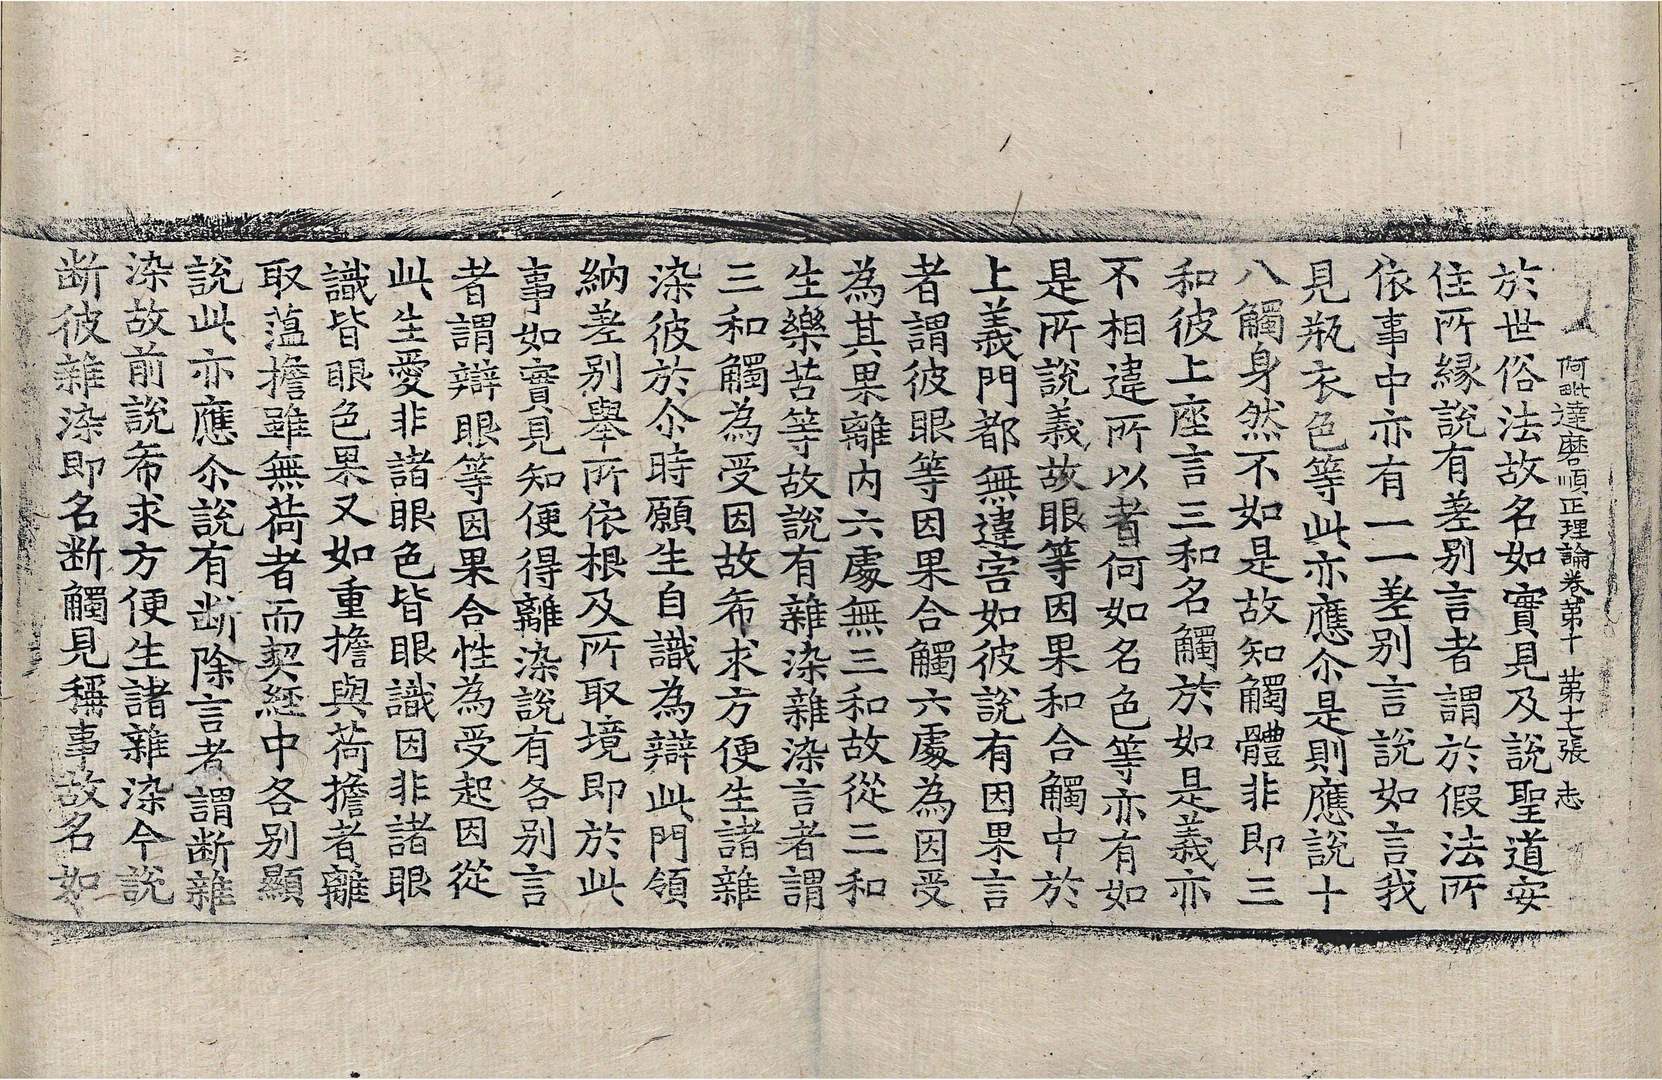 阿毗達磨順正理論卷第十 第十七張 志
於世俗法故名如實見及說聖道安
住所緣說有差別言者謂於假法所
依事中亦有一一差別言說如言我
見瓶衣色等此亦應尒是則應說十
八觸身然不如是故知觸體非即三
和彼上座言三和名觸於如是義亦
不相違所以者何如名色等亦有如
是所說義故眼等因果和合觸中於
上義門都無違害如彼說有因果言
者謂彼眼等因果合觸六處為因受
為其果離內六處無三和故從三和
生樂苦等故說有雜染雜染言者謂
三和觸為受因故希求方便生諸雜
染彼於尒時願生自識為辯此門領
納差別舉所依根及所取境即於此
事如實見知便得離染說有各別言
者謂辯眼等因果合性為受起因從
此生愛非諸眼色皆眼識因非諸眼
識皆眼色果又如重擔與荷擔者離
取薀擔雖無荷者而契經中各別顯
說此亦應尒說有断除言者謂断雜
染故前說希求方便生諸雜染今說
断彼雜染即名断觸見稱事故名如